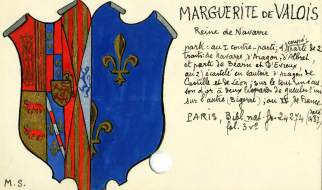 MARGUERITE DE VALOIS
Reine de Navarre
parti: au 1 contre-parti, coupé, parti de 2
traits de Navarre, d'Aragon, d'Albret
et parti de Béarn et d'Evreux
au 2) écartelé en sautoir d'Aragon de
Castille et de Léon; sur le tout un écu
son d'or à deux léopards de gueules l'un
sur l'autre (Bigorre), au II de France.
PARIS, Bibl. nat. fr. 24274
fol. 3 v°
M.S.